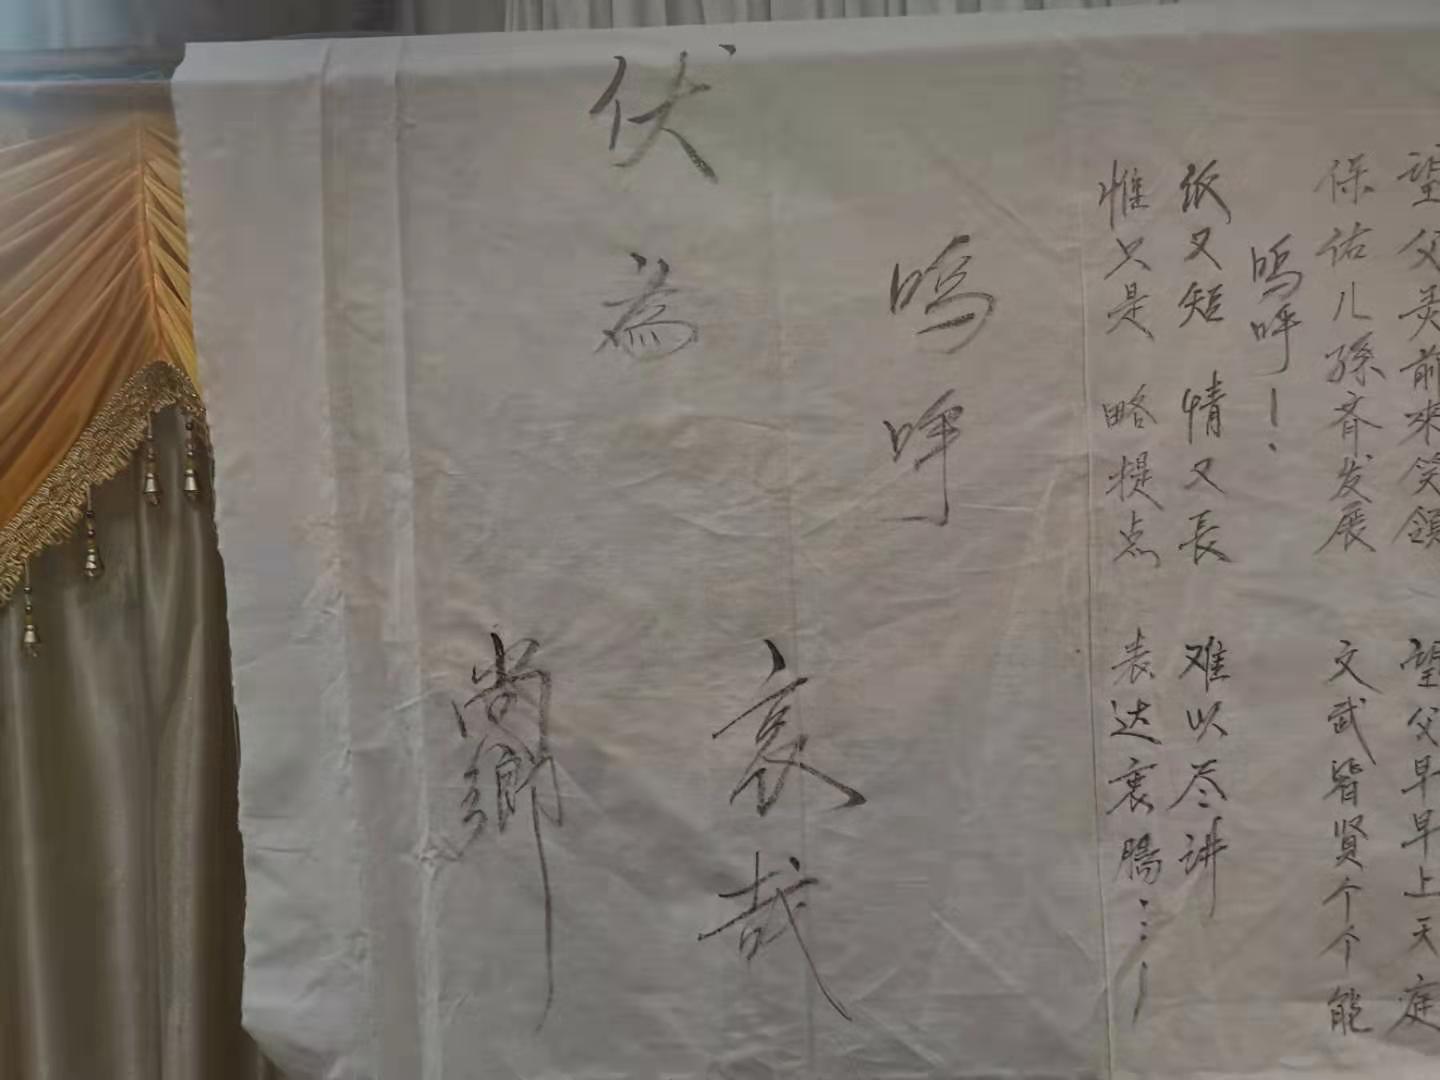 望父灵前来笑領 望父早早上天庭
保佑儿孫齐发展 文武皆贤个个能
嗚呼！
纸又短 情又長 难以尽讲
惟只是 略提点 表达衷腸…！
嗚呼
哀哉
伏為
尚鄉